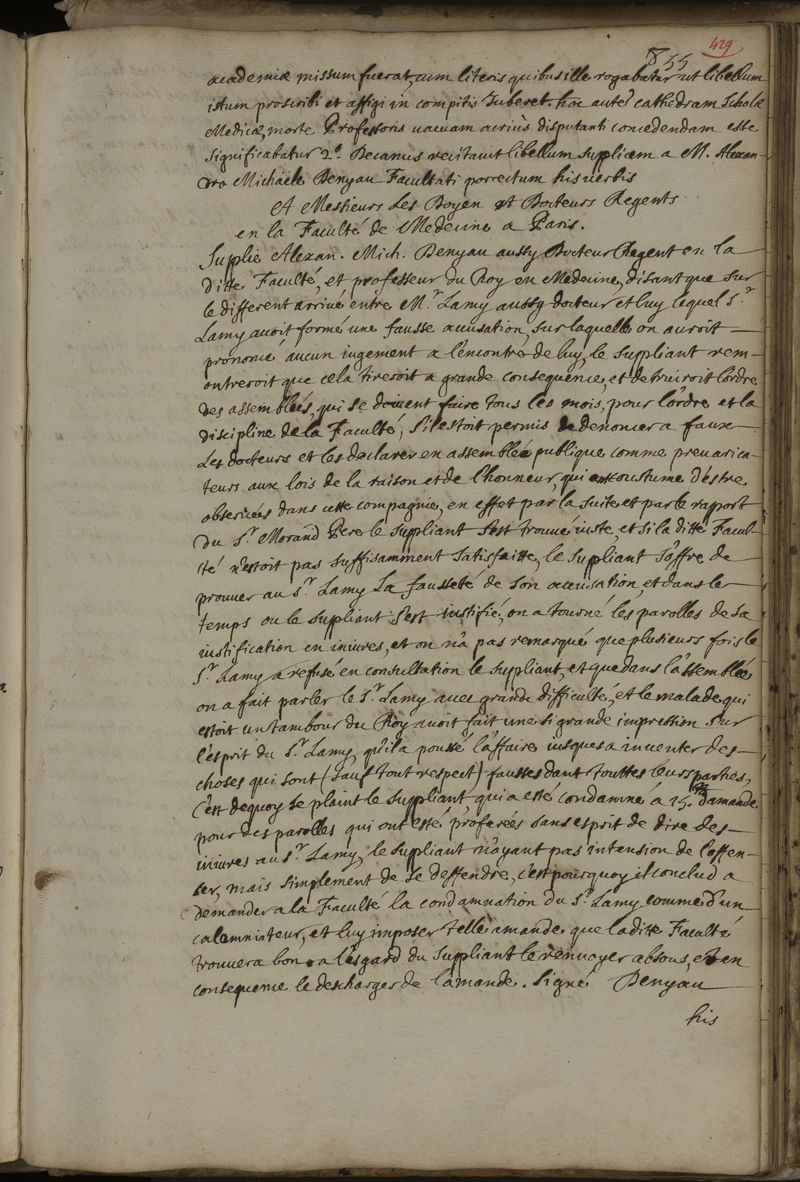 855
429
academiæ missum fuerat, cum literis quibus ille rogabatur ut libellum
istum proscribi et affigi in compitis Juberet. hac autē cathedram Scholæ
Medicæ, morte Professoris vacuam acriùs disputanti concedendam esse
significabatur 2º. Decanus recitavit libellum supplicem a M. Alexan-
dro Michaële Denyau Facultati porrectum his verbis
A Messieurs Les Doyen et Docteurs Regents
en la Faculté de Medecine a Paris.
Supplie Alexan. Mich. Denyau aussy Docteur Regent en la
ditte Faculté, et professeur du Roy en Medecine, disant que sur
le different arrivé entre M.r Lamy aussy docteur et luy lequel S.r
Lamy avoit formé une fausse accusation, sur laquelle on auroit
prononcé aucun iugement a l'encontre de luy, le suppliant rem-
ontreroit que cela tireroit a grande consequence, et detruiroit l'ordre
des assemblées, qui se doivent faire tous les mois, pour l'ordre et la
discipline de la Faculté, s'il estoit permis de denoncer a faux
Les docteurs et les declarer en assemblée publique comme prevarica-
teurs aux lois de la raison et de l'honneur, qui ont coustume d'estre
observées dans cette compagnie, en effet par la suite et par le rapport
du S.r Morand Pere le suppliant s'est trouvé iuste, et si la ditte Facul-
té n'estoit pas suffisamment satisfaitte, le supliant s'offre de
prouver au S.r Lamy La fausseté de son accusation, et dans le
temps ou le supliant s'est iustifié, on a tourné les parolles de sa
iustification en iniures, et on n'a pas remarqué que plusieurs fois le
S.r Lamy a refusé en consultation le suppliant, et que dans l'assemblée
on a fait parler le S.r Lamy avec grande difficulté, et le malade qui
estoit un tambour du Roy avoit fait une si grande impression sur
l'esprit du S.r Lamy, qu'il a poussé l'affaire iusques a inventer des
choses qui sont (sauf tout respect) fausses dant touttes leurs parties,
C'est dequoy se plaint le suppliant, qui a esté condamné a 15.tt d'amande
pour des parolles qui ont esté proferées sans esprit de dire des
iniures au S.r Lamy, le suppliant n'ayant pas intension de l'offen-
ser, mais simplement de se deffendre, c'est pourquoy il conclud a
demander a la Faculté la condamnation du S.r Lamy comme d'un
calomniateur, et luy imposer telle amande que la ditte Faculté
trouvera bon a l'esgard du suppliant le renvoyer absous, et en
consequence le descharger de l'amande. Signé Denyau
his